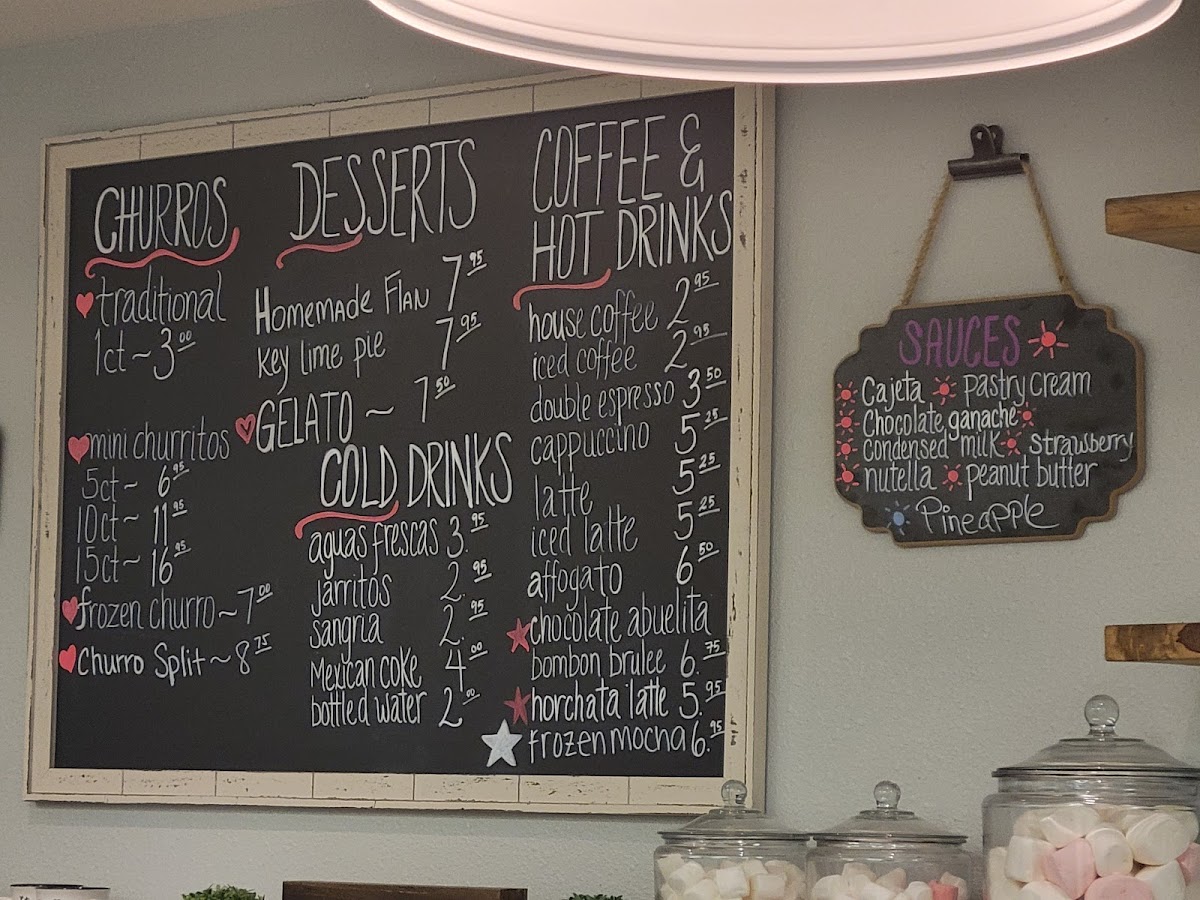 CHURROS
traditional
1ct ~ 3.00
mini churritos
5ct ~ 6.95
10ct ~ 11.95
15ct ~ 16.95
frozen churro ~ 7.00
Churro Split ~ 8.75
DESSERTS
Homemade Flan 7.95
Key lime pie 7.95
GELATO ~ 7.50
COLD DRINKS
aguas frescas 3.95
jarritos 2.95
sangria 2.95
Mexican coke 4.00
bottled water 2.00
COFFEE &
HOT DRINKS
house coffee 2.95
iced coffee 2.95
double espresso 3.50
cappuccino 5.25
latte 5.25
iced latte 5.25
affogato 6.50
chocolate abuelita
bombon brulee 6.75
horchata latte 5.95
frozen mocha 6.95
SAUCES
Cajeta Pastry cream
Chocolate ganache
Condensed milk Strawberry
nutella peanut butter
Pineapple